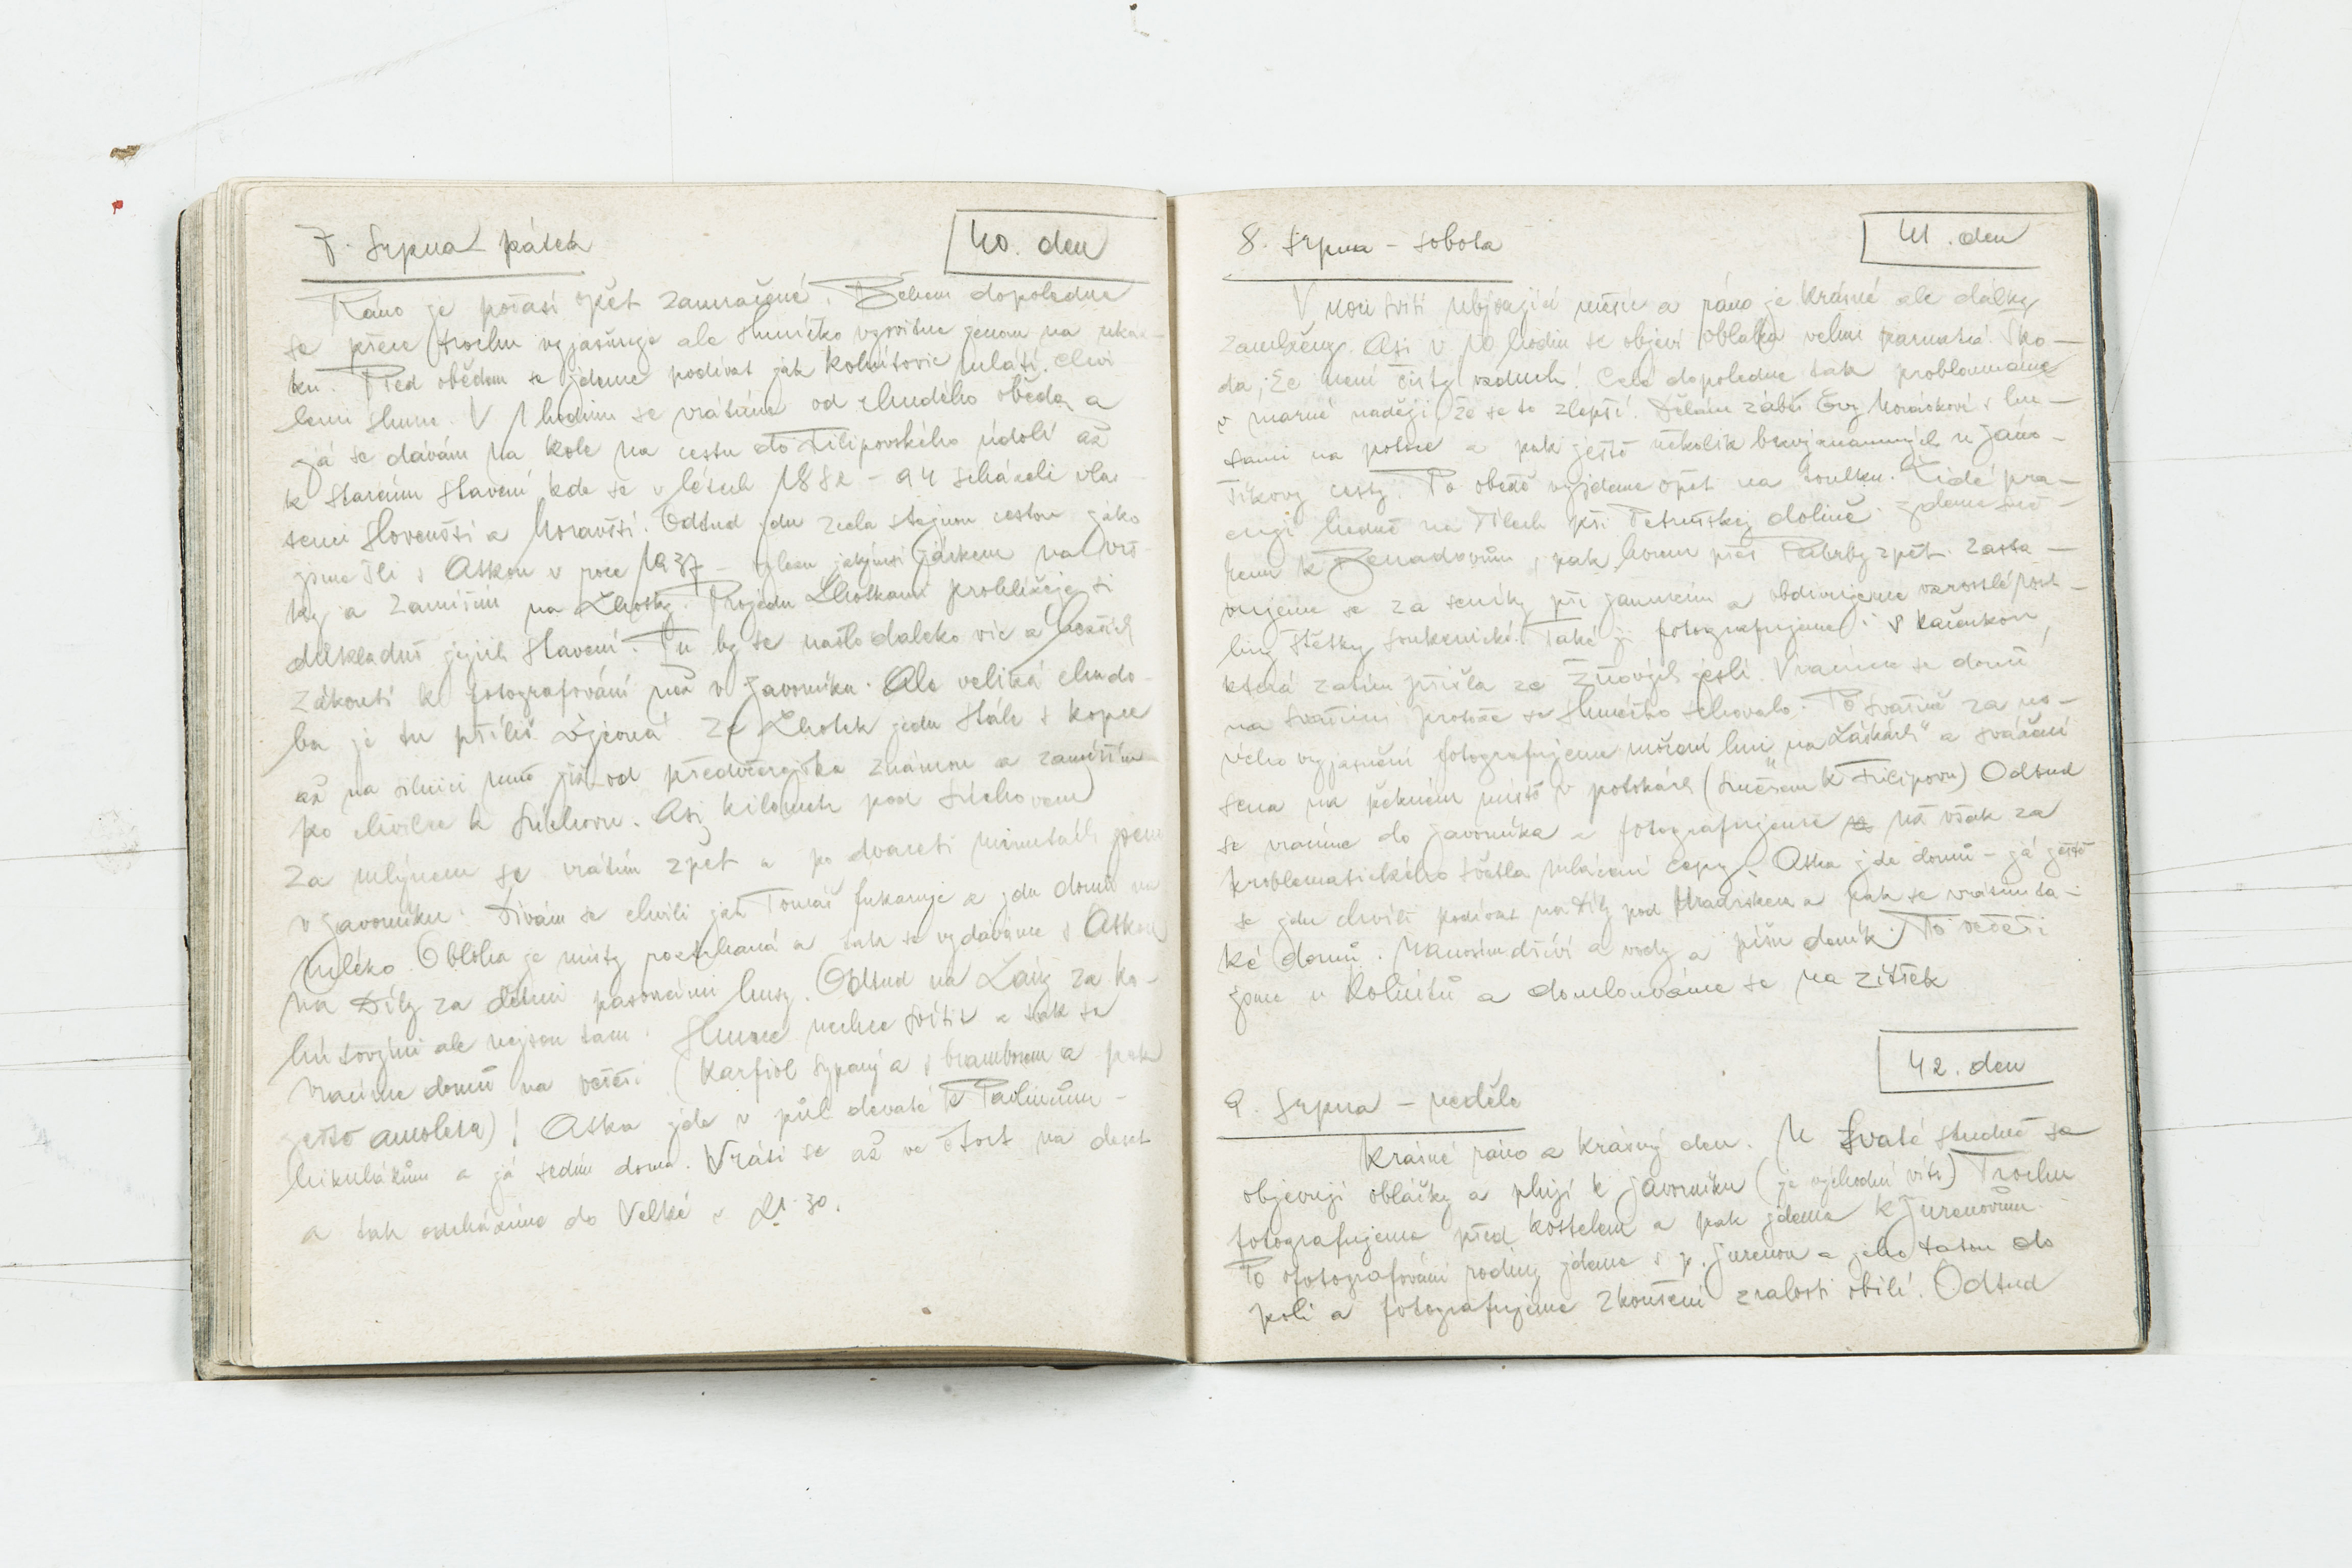 7. srpna – pátek
40. den
Ráno je počasí opět zamračené. Během dopoledne
se přece trochu vyjasňuje ale sluníčko vysvitne jenom na ukáz-
ku. Před obědem se jdeme podívat jak Kohútovic mlátí. Chvi
lemi slunce. V 1 hodinu se vrátíme od chudého oběda a
já se dávám na kole na cestu do Filipovského údolí až
k starému stavení kde se v létech 1882 – 94 scházeli vla-
stenci slovenští a moravští. Odtud jdu zcela stejnou cestou jako
jsme šli s Aškou v roce 1937 – vzhůru jakýmsi járkem na vrš-
ky a zamířím na Lhotky. Projedu Lhotkami prohlížeje si
důkladně jejich stavení. Tu by se našlo daleko víc a hezčích
zákoutí k fotografování než v Javorníku. Ale veliká chudo-
ba je tu příliš zjevná. Ze Lhotek jedu stále s kopce
až na silnici mně již od předvčerejška známou a zamířím
po chvilce k Súchovu. Asi kilometr pod Súchovem
za mlýnem se vrátím zpět a po dvaceti minutách jsem
v Javorníku. Dívám se chvíli jak Tomáš fukaruje a jdu domů na
mléko. Obloha je místy potrhaná a tak se vydáváme s Aškou
na Díly za dětmi pasoucími husy. Odtud na Láňy za Ko-
hútovými ale nejsou tam. Slunce nechce svítit a tak se
vracíme domů na večeři (Karfiol sypaný a s bramborem a pak
ještě amoleta)! Aška jde v půl deváté k Pavlincům –
Mikulákům a já sedím doma. Vrátí se až ve čtvrt na deset
a tak odcházíme do Velké v 21.30.
8. srpna – sobota
41. den
V noci svítí ubývající měsíc a ráno je krásné ale dálky
zamlženy. Asi v 10 hodin se objeví oblaka velmi parnatá. Ško-
da, že není čistý vzduch! Celé dopoledne tak proflámáme
v marné naději, že se to zlepší. Dělám záběr Evy Moráskové s hu-
sami na potoce a pak ještě několik bezvýznamných u Jano-
šíkovy cesty. Po obědě vyjdeme opět na toulku. Lidé pra-
cují hodně na Dílech při Petrušskej dolině. Jdeme smě-
rem k Benadovům, pak horem přes Pahrby zpět. Zasta-
vujeme se za seníky při Janunčím a obdivujeme vzrostlé rost-
liny štětky soukenické. Také ji fotografujeme i s Kačenkou,
která zatím přišla ze žňových jeslí. Vracíme se domů
na svačinu protože se sluníčko schovalo. Po svačině za no-
vého vyjasnění fotografujeme močení lnu „na Láskách" a svážení
sena na pěkném místě v potokách (směrem k Filipovu) Odtud
se vracíme do Javorníka a fotografujeme na však za
problematického světla mlácení cepy. Aška jde domů – já ještě
se jdu chvíli podívat na Díly pod Hradiskem a pak se vrátím ta-
ké domů. Nanosím dříví a vody a píšu deník. Po večeři
jsme u Kohútů a domlouváme se na zítřek
42. den
9. srpna – neděle
Krásné ráno a krásný den. U Svaté studně se
objevují obláčky a plují k Javorníku (je východní vítr) Trochu
fotografujeme před kostelem a pak jdeme k Jurenovům.
Po ofotografování rodiny jdeme s p. Jurenou a jeho tatou do
polí a fotografujeme zkoušení zralosti obilí. Odtud